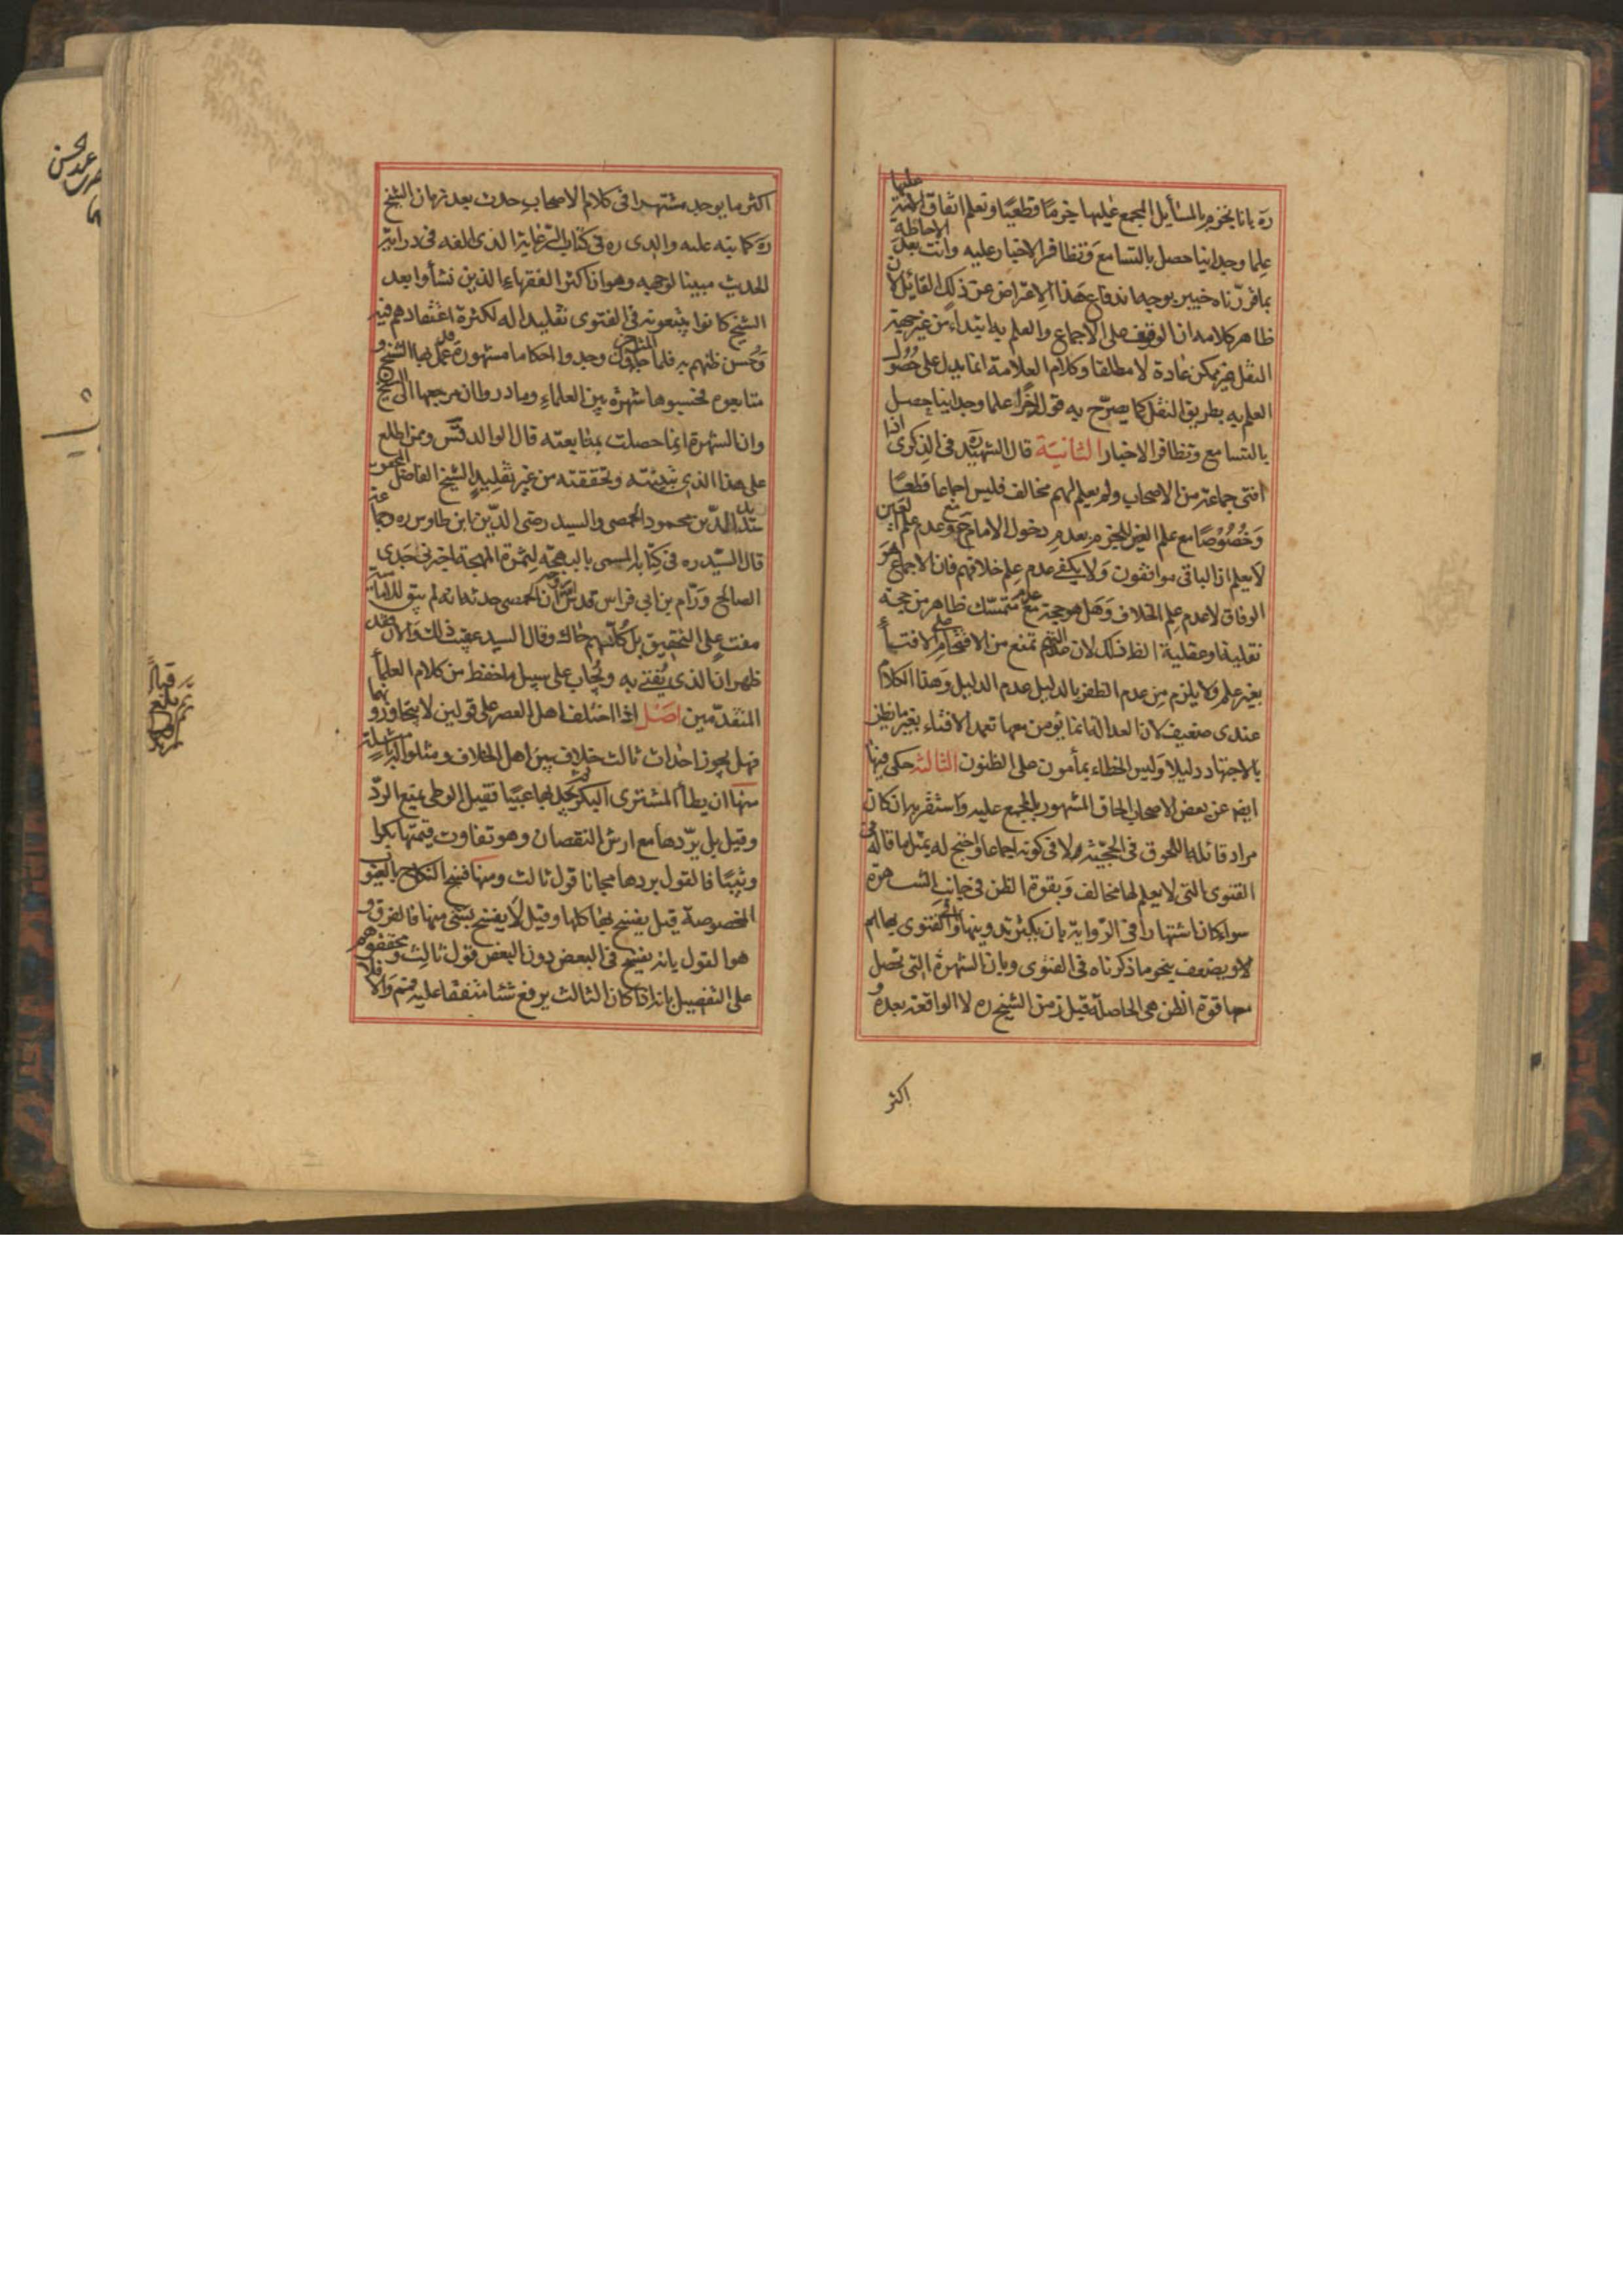 ره بانا نجزم بالمسائل المجمع عليها جزما قطعيا ونعلم اتفاق الامة عليها
علما وجدانيا حصل بالتسامع وتظافر الاخبار عليه وانت بعد الاحاطة
بما قررناه خبير بوجه اندفاع هذا الاعتراض عن ذلك القائل لان
ظاهر كلامه ان الوقوف على الاجماع والعلم به ابتداء من غير جهة
النقل غير ممكن عادة لا مطلقا وكلام العلامة انما يدل على حصول
العلم به بطريق النقل كما يصرح به قوله اخرا علما وجدانيا حصل
بالتسامع وتظافر الاخبار الثانية قال الشهيد ره في الذكرى اذا
افتى جماعة من الاصحاب ولم يعلم لهم مخالف فليس اجماعا قطعيا
وخصوصا مع علم العين للجزم بعدم دخول الامام ح ومع عدم علم العين
لا يعلم ان الباقي موافقون ولا يكفي عدم علم خلافهم فان الاجماع هو
الوفاق لا عدم علم الخلاف وهل هو حجة مع عدم متمسك ظاهر من حجة
نقلية او عقلية الظ ذلك لان عدالتهم تمنع من الاقتحام على الافتاء
بغير علم ولا يلزم من عدم الظفر بالدليل عدم الدليل وهذا الكلام
عندى ضعيف لان العدالة انما يؤمن معها تعمد الافتاء بغير ما يظن
بالاجتهاد دليلا وليس الخطاء بمأمون على الظنون الثالثة حكى فيها
ايضا عن بعض الاصحاب الحاق المشهور بالمجمع عليه واستقربه ان كان
مراد قائله اللحوق في الحجية لا في كونه اجماعا واحتج له بمثل ما قاله في
الفتوى التى لا يعلم لها مخالف وبقوة الظن في جانب الشهرة
سواء كان اشتهارا في الرواية بان يكثر تدوينها او الفتوى بها اهم
لا ويضعف بنحو ما ذكرناه في الفتوى وبان الشهرة التى تحصل
معها قوة الظن هى الحاصلة قبل زمن الشيخ ره لا الواقعة بعده و
اكثر
اكثر ما يوجد مشتهرا في كلام الاصحاب حدث بعد زمان الشيخ
ره كما نبه عليه والدى ره في كتاب الرعاية الذى الفه في دراية
الحديث مبينا لوجهه وهو ان اكثر الفقهاء الذين نشأوا بعد
الشيخ كانوا يتبعونه في الفتوى تقليدا له لكثرة اعتقادهم فيه
وحسن ظنهم به فلما جاء المتاخرون وجدوا احكاما مشهورة قد عمل بها الشيخ و
متابعوه فحسبوها شهرة بين العلماء وما دروا ان مرجعها الى الشيخ
وان الشهرة انما حصلت بمتابعته قال الوالد قدس ومن اطلع
على هذا الذى تبينته وتحققته من غير تقليد الشيخ الفاضل المحقق
سديد الدين محمود الحمصى والسيد رضى الدين ابن طاوس ره وجماعة
قال السيد ره في كتابه المسمى بالبهجة لثمرة المهجة اخبرنى جدى
الصالح ورام بن ابي فراس قدس ان الحمصى حدثه انه لم يبق للامامية
مفت على التحقيق بل كلهم حاك وقال السيد عقيب ذلك والان فقد
ظهر ان الذى يفتى به ويجاب على سبيل ما حفظ من كلام العلماء
المتقدمين اصل اذا اختلف اهل العصر على قولين لا يتجاوزونهما
فهل يجوز احداث ثالث خلاف بين اهل الخلاف ومثلوا له بامثلة
منها ان يطأ المشترى البكر ثم يجد بها عيبا فقيل الوطى يمنع الرد
وقيل بل يردها مع ارش النقصان وهو تفاوت قيمتها بكرا
وثيبا فالقول بردها مجانا قول ثالث ومنها فسخ النكاح بالعيوب
المخصوصة قيل يفسخ بها كلها وقيل لا يفسخ بشى منها فالفرق و
هو القول بانه يفسخ في البعض دون البعض قول ثالث ومحققوهم
على التفصيل بانه ان كان الثالث يرفع شئا متفقا عليه فمنع والا فلا